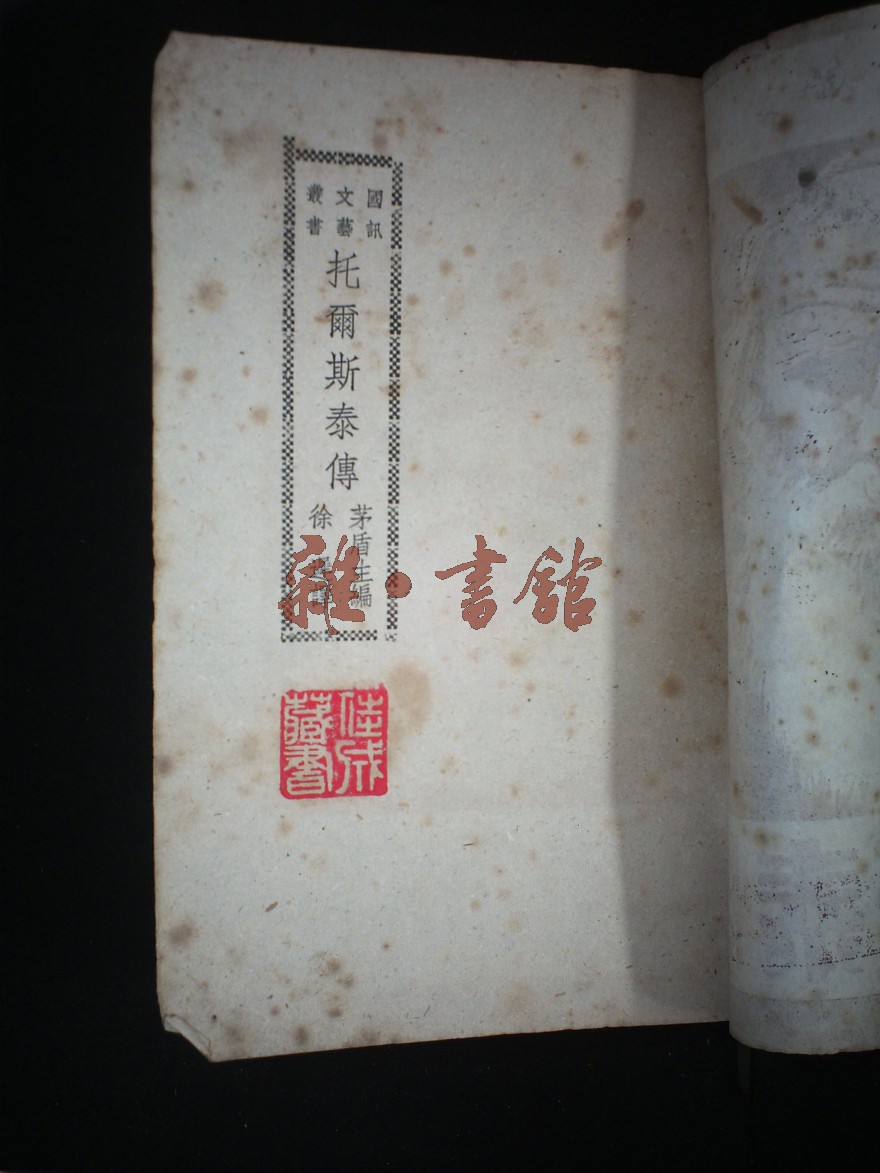 國訊
文藝
叢書
托爾斯泰傳
茅盾主編
徐遲譯
雜·書館
佳成
藏書